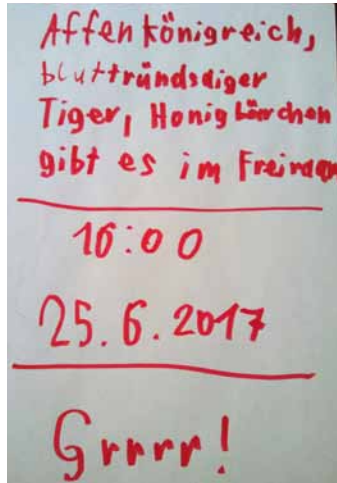 Affenkönigreich,
bluttründsdiger
Tiger, Honigbärchen
gibt es im Freiraum
16:00
25.6.2017
Grrrr!